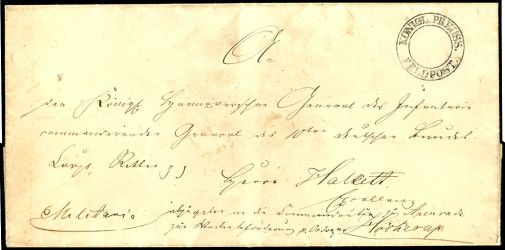 KÖNIGL. PREUSS.
FELDPOST.
An
den Königl Hannoverschen General der Infanterie
commandirenden General des 10ten deutschen Bundes
Corps, Ritter pp
Herrn Halkett
Excellenz
Militaria
abzugeben an die Commandantur zu Apenrade
zur Weiterbeförderung p. Ordonnanz